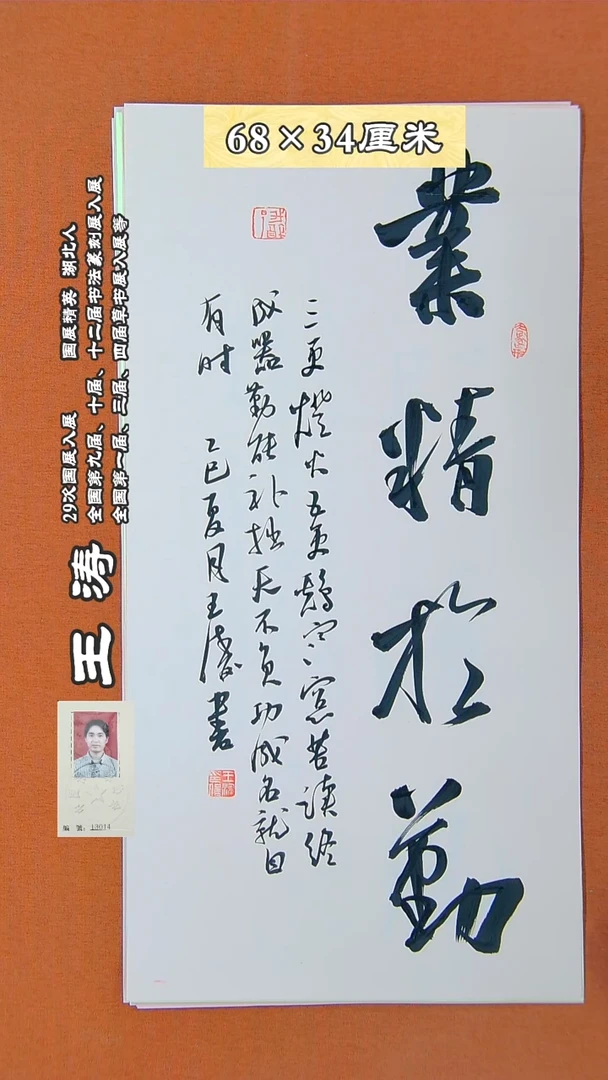 68×34厘米
業精於勤
三更燈火五更鷄寒窗苦讀終
成器勤能補拙天不負功成名就自
有时 乙巳夏月王濤書
王涛
29次国展入展 国展精英 湖北人
全国第九届、十届、十二届书法篆刻展入展
全国第一届、三届、四届草书展入展等
编 号: 13014